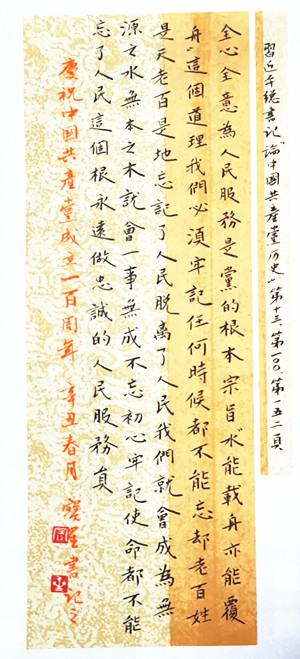 習近平總書記"論中國共產黨历史"第十三、第一〇〇、第一五二頁
全心全意為人民服務是黨的根本宗旨"水能載舟亦能覆
舟"這個道理我們必須牢記任何時候都不能忘却老百姓
是天老百是地忘記了人民脱離了人民我們就會成為無
源之水無本之木就會一事無成不忘初心牢記使命都不能
忘了人民這個根永遠做忠誠的人民服務員
慶祝中國共產黨成立一百周年 辛丑春月 寶生書記之